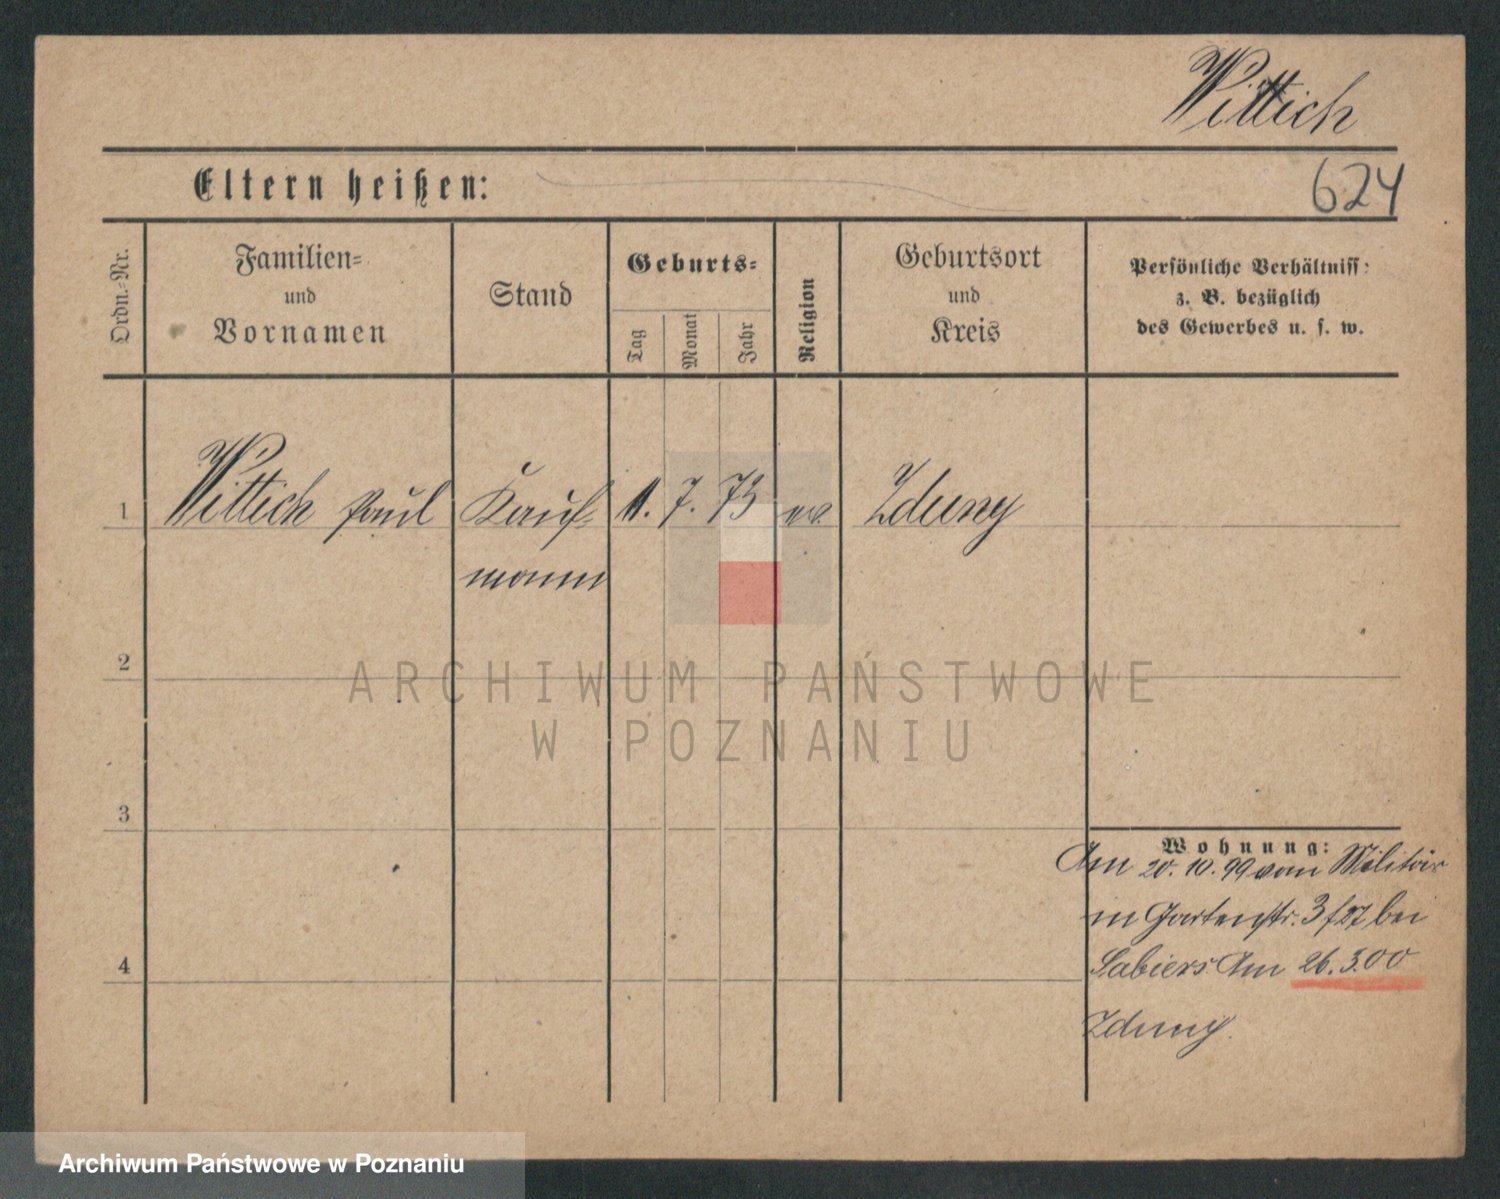 Wittich
Eltern heißen:
624
Ordn.-Nr.
Familien-
und
Vornamen
Stand
Geburts-
Tag
Monat
Jahr
Religion
Geburtsort
und
Kreis
Persönliche Verhältniss:
z. B. bezüglich
des Gewerbes u. s. w.
1 Wittich Paul Kauf- 11. 7. 73 ev. Zduny
mann
2
ARCHIWUM PAŃSTWOWE
W POZNANIU
3
Wohnung:
Am 20. 10. 99 vom Militär
in Gartenstr. 3 bei
4
Am 26. 3. 00
Zduny.
Archiwum Państwowe w Poznaniu